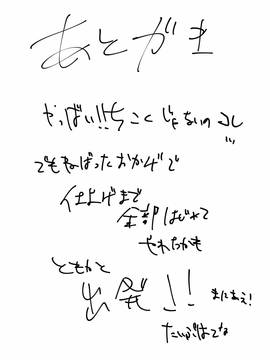 あとがき
やっばい!!ちこくじゃないのコレ
でもねばったおかげで
仕上げまで
全部はじめて
やれたかも
ともかく
出発!!
まにあえ!